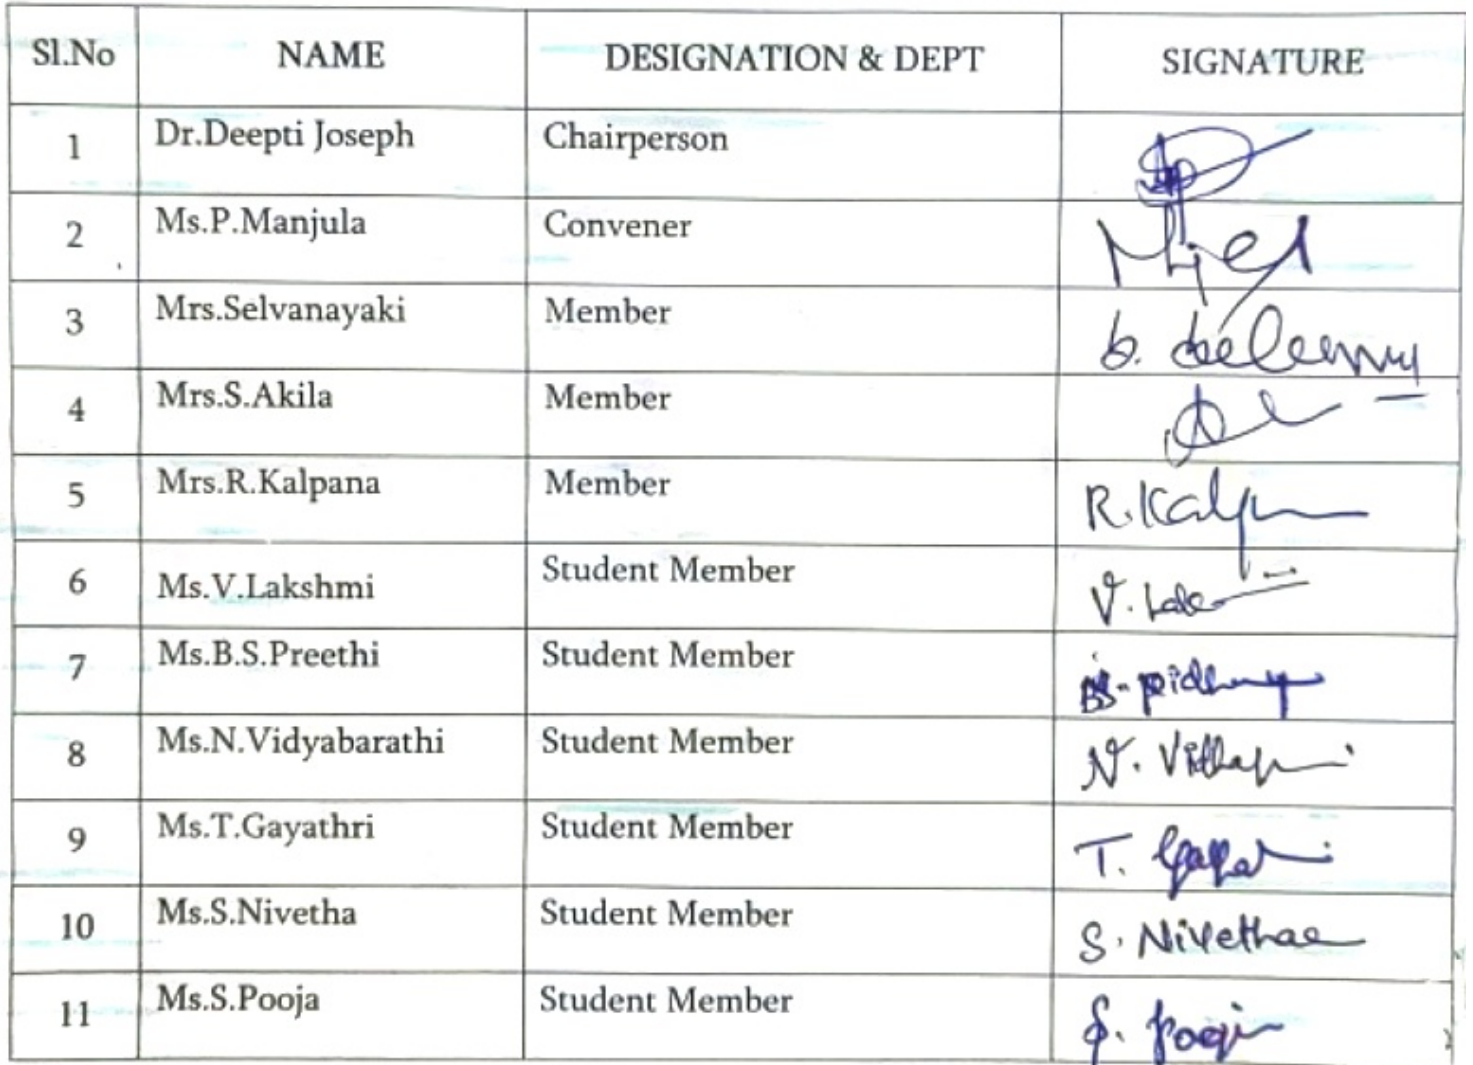 Sl.No NAME DESIGNATION & DEPT SIGNATURE
1 Dr.Deepti Joseph Chairperson
2 Ms.P.Manjula Convener
3 Mrs.Selvanayaki Member
4 Mrs.S.Akila Member
5 Mrs.R.Kalpana Member R.Kalp
6 Ms.V.Lakshmi Student Member V.
7 Ms.B.S.Preethi Student Member
8 Ms.N.Vidyabarathi Student Member N.
9 Ms.T.Gayathri Student Member T.
10 Ms.S.Nivetha Student Member S. Nivetha
11 Ms.S.Pooja Student Member S.